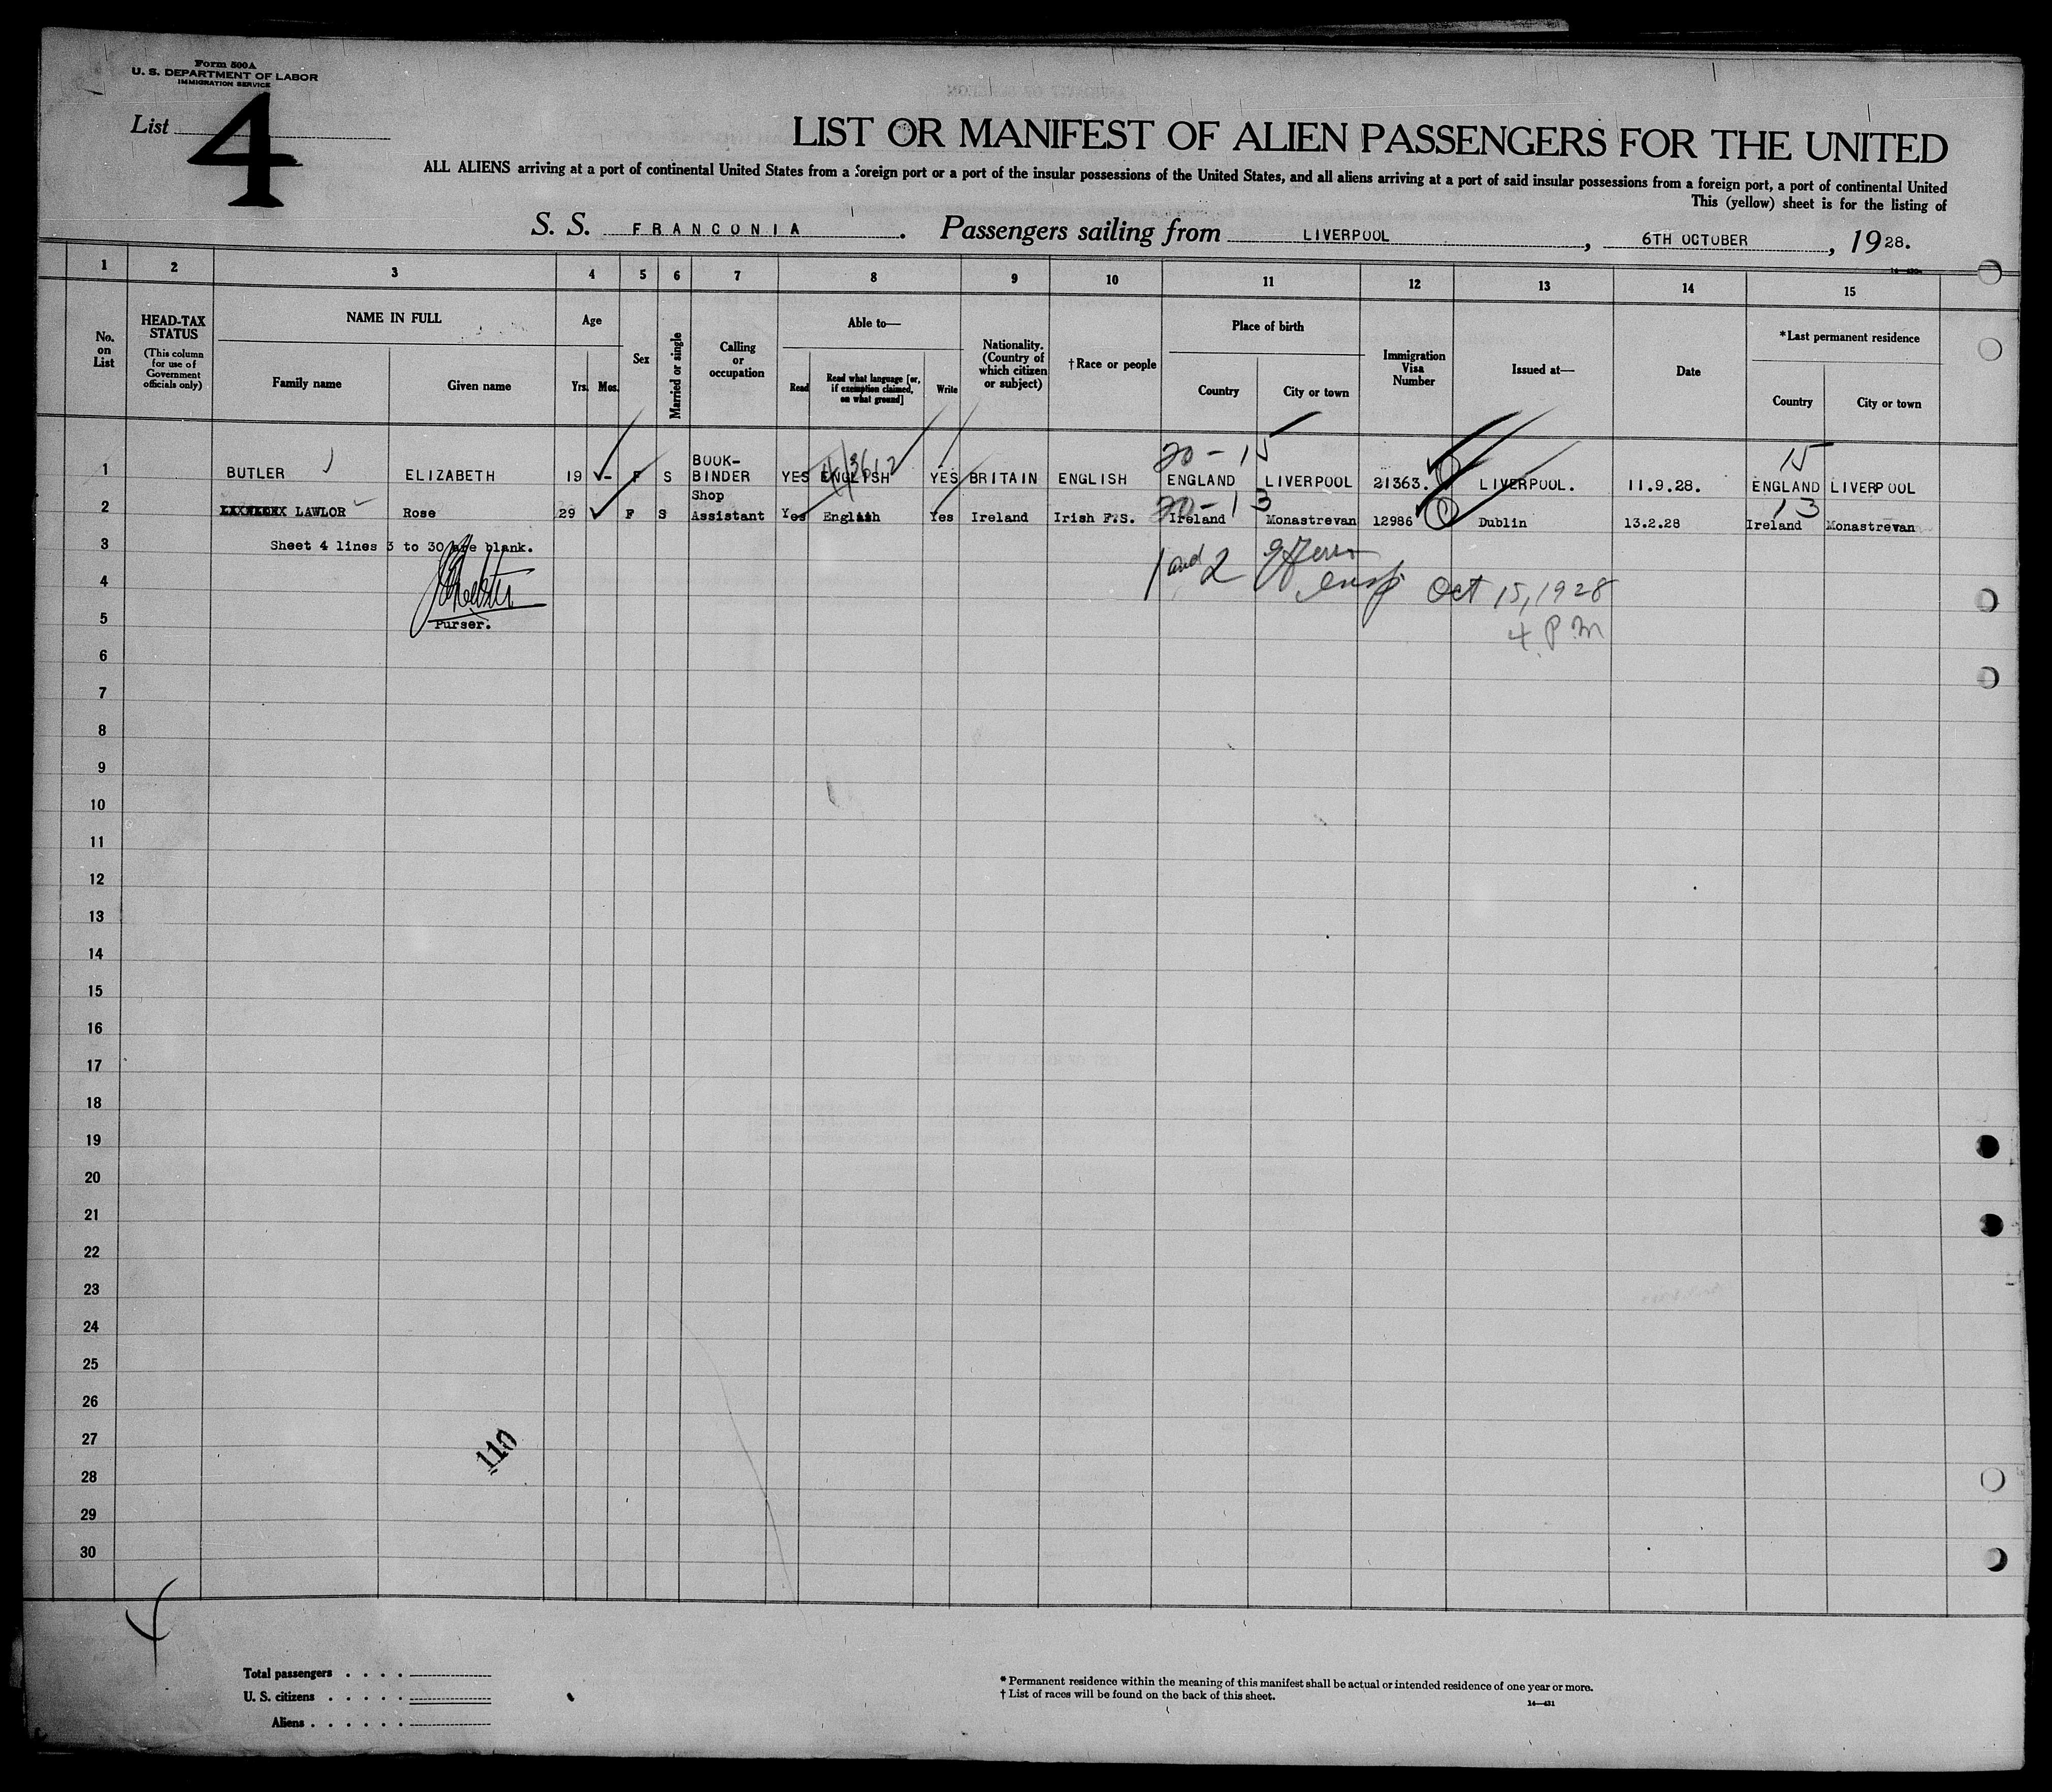 Form 500A
U. S. DEPARTMENT OF LABOR
IMMIGRATION SERVICE
List 4
LIST OR MANIFEST OF ALIEN PASSENGERS FOR THE UNITED
ALL ALIENS arriving at a port of continental United States from a foreign port or a port of the insular possessions of the United States, and all aliens arriving at a port of said insular possessions from a foreign port, a port of continental United
This (yellow) sheet is for the listing of
S. S. FRANCONIA. Passengers sailing from LIVERPOOL, 6TH OCTOBER, 1928.
1 2 3 4 5 6 7 8 9 10 11 12 13 14 15
No. on List
HEAD-TAX STATUS (This column for use of Government officials only)
NAME IN FULL
Family name Given name
Age
Yrs. Mos.
Sex
Married or single
Calling or occupation
Able to—
Read Read what language [or, if exemption claimed, on what ground] Write
Nationality. (Country of which citizen or subject)
†Race or people
Place of birth
Country City or town
Immigration Visa Number
Issued at—
Date
*Last permanent residence
Country City or town
20-15 15
1 BUTLER ELIZABETH 19 - F S BOOK-BINDER YES ENGLISH YES BRITAIN ENGLISH ENGLAND LIVERPOOL 21363. LIVERPOOL. 11.9.28. ENGLAND LIVERPOOL
20-13 13
2 LAWLOR Rose 29 F S Shop Assistant Yes English Yes Ireland Irish F.S. Ireland Monastrevan 12986 Dublin 13.2.28 Ireland Monastrevan
3 Sheet 4 lines 3 to 30 are blank.
1 and 2
4 Oct 15, 1928
5 Purser. 4 P M
6
7
8
9
10
11
12
13
14
15
16
17
18
19
20
21
22
23
24
25
26
27
110
28
29
30
Total passengers . . . .
U. S. citizens . . . . .
Aliens . . . . . .
* Permanent residence within the meaning of this manifest shall be actual or intended residence of one year or more.
† List of races will be found on the back of this sheet.
14—431